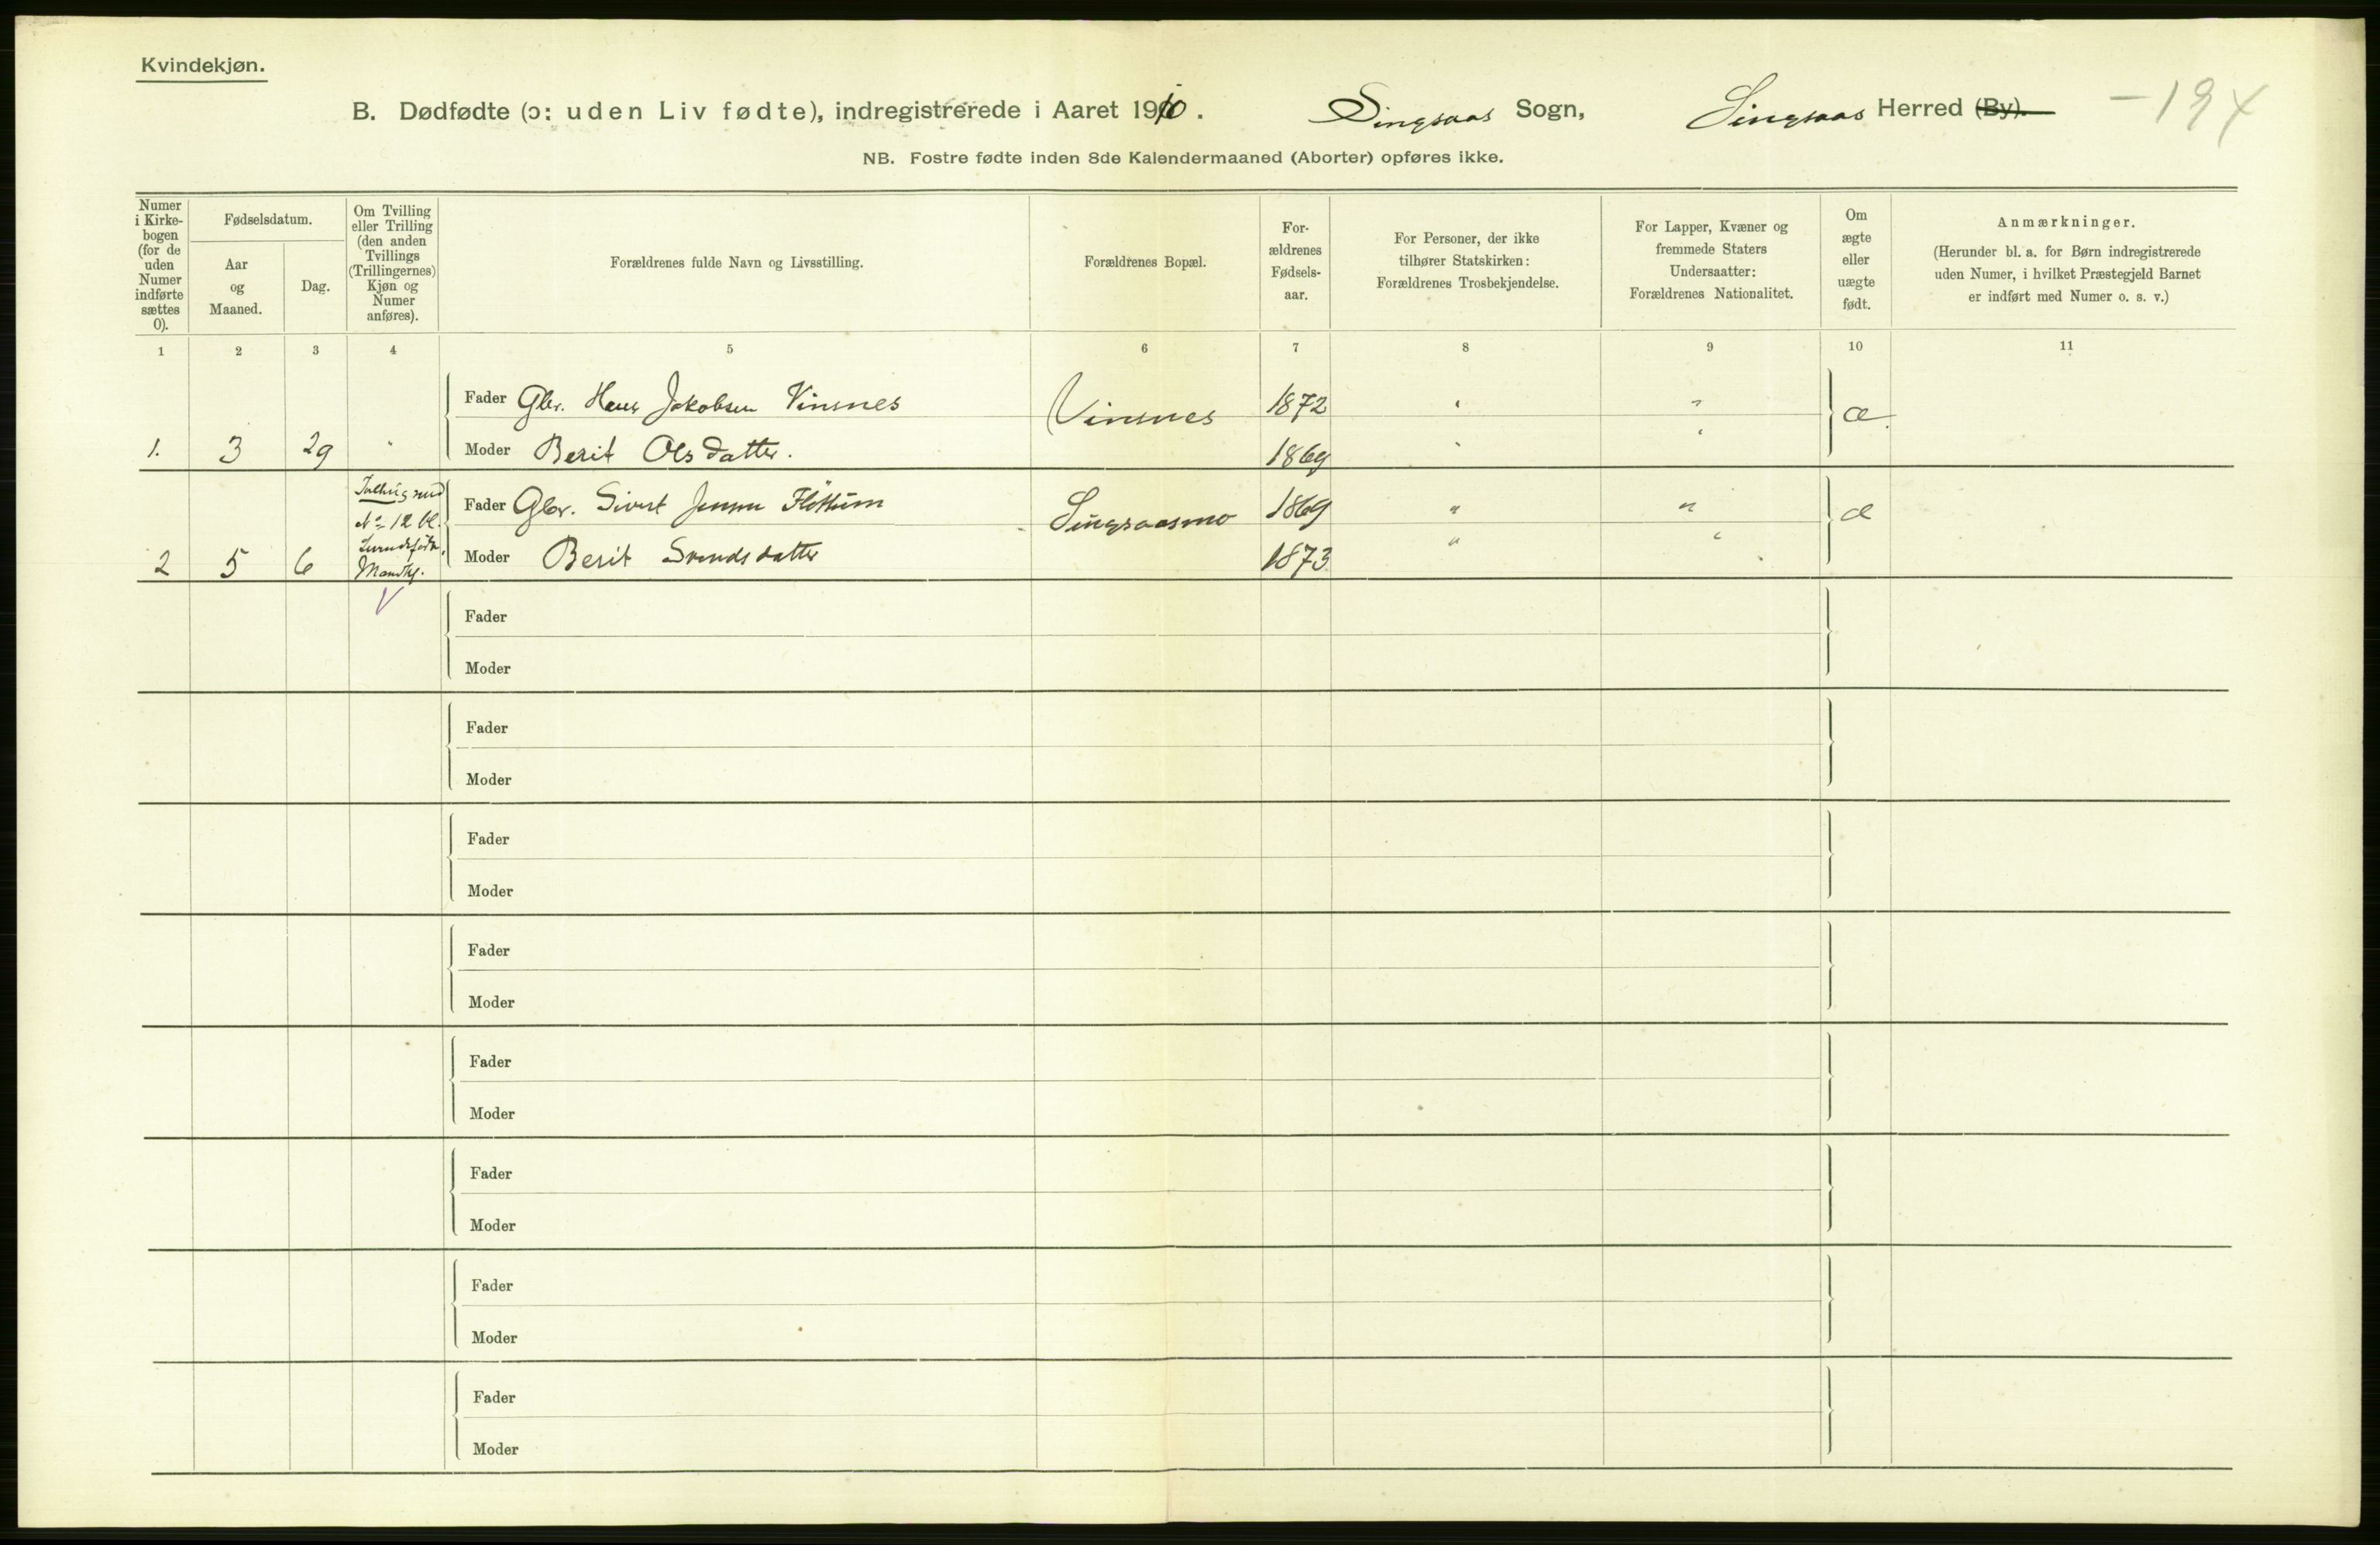 Kvindekjøn.
B. Dødfødte (ɔ: uden Liv fødte), indregistrerede i Aaret 1910. Singsaas Sogn, Singsaas Herred (By).
-194
NB. Fostre fødte inden 8de Kalendermaaned (Aborter) opføres ikke.
Numer
i Kirke-
bogen
(for de
uden
Numer
indførte
sættes
0).
Fødselsdatum.
Aar
og
Maaned.
Dag.
Om Tvilling
eller Trilling
(den anden
Tvillings
(Trillingernes)
Kjøn og
Numer
anføres).
Forældrenes fulde Navn og Livsstilling.
Forældrenes Bopæl.
For-
ældrenes
Fødsels-
aar.
For Personer, der ikke
tilhører Statskirken:
Forældrenes Trosbekjendelse.
For Lapper, Kvæner og
fremmede Staters
Undersaatter:
Forældrenes Nationalitet.
Om
ægte
eller
uægte
født.
Anmærkninger.
(Herunder bl. a. for Børn indregistrerede
uden Numer, i hvilket Præstegjeld Barnet
er indført med Numer o. s. v.)
1 2 3 4 5 6 7 8 9 10 11
Fader Gbr. Hans Jakobsen Vinsnes Vinsnes 1872 " " æ.
1. 3 29 " Moder Berit Olsdatter. 1869 " "
Tvilling med
No 12 bl.
Mandkj.
Fader Gbr. Sivert Jensen Fløttum Singsaasmo 1869 " " æ
2 5 6 Moder Berit Svendsdatter 1873 " "
Fader
Moder
Fader
Moder
Fader
Moder
Fader
Moder
Fader
Moder
Fader
Moder
Fader
Moder
Fader
Moder